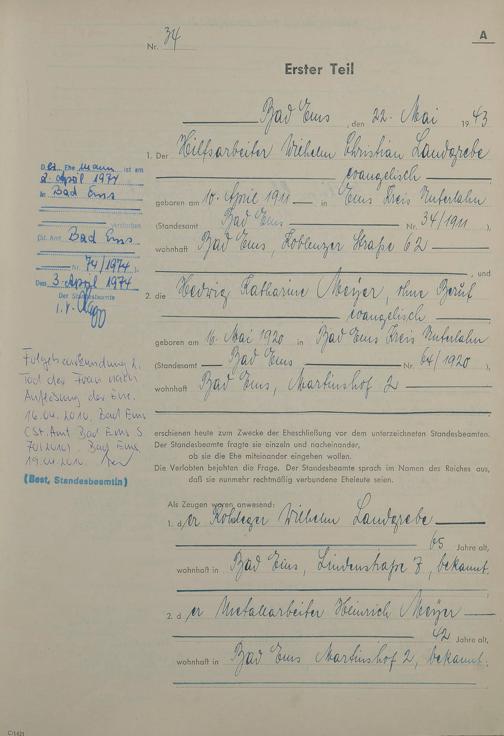 A
Nr. 34
Erster Teil
Bad Ems, den 22. Mai 1943
1. Der Hilfsarbeiter Wilhelm Christian Landgrebe
evangelisch
geboren am 10. April 1911 in Ems Kreis Unterlahn
(Standesamt Bad Ems Nr. 34/1911),
wohnhaft Bad Ems, Koblenzer Straße 62
, und
2. die Hedwig Katharine Meyer, ohne Beruf
evangelisch
geboren am 16. Mai 1920 in Bad Ems Kreis Unterlahn
(Standesamt Bad Ems Nr. 64/1920),
wohnhaft Bad Ems, Martinshof 2
erschienen heute zum Zwecke der Eheschließung vor dem unterzeichneten Standesbeamten.
Der Standesbeamte fragte sie einzeln und nacheinander,
ob sie die Ehe miteinander eingehen wollen.
Die Verlobten bejahten die Frage. Der Standesbeamte sprach im Namen des Reiches aus,
daß sie nunmehr rechtmäßig verbundene Eheleute seien.
Als Zeugen waren anwesend:
1. der Wilhelm Landgrebe
65 Jahre alt,
wohnhaft in Bad Ems, Lindenstraße 7, bekannt.
2. der Metallarbeiter Heinrich Meyer
42 Jahre alt,
wohnhaft in Bad Ems Martinshof 2, bekannt.
Der Ehemann ist am
2. April 1974
in Bad Ems
verstorben
(St. Amt Bad Ems
Nr. 74/1974).
Den 3. April 1974
Der Standesbeamte
I.V.
Folgebeurkundung 2.
Tod der Frau nach
Auflösung der Ehe.
16.04.2010, Bad Ems
(St. Amt Bad Ems S
Bad Ems
19.04.2010.
(Best, Standesbeamtin)
C/1421